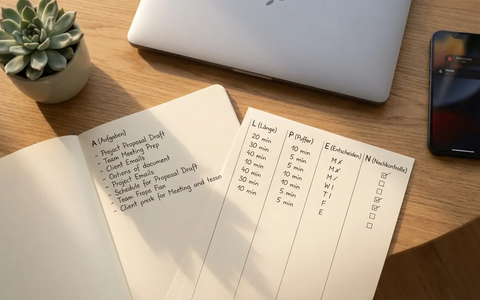 A (Aufgaben)
- Project Proposal Draft
- Team Meeting Prep
- Client Emails
- Oations of document
- Project Emails
- Schedule for Proposal Draft
- Team Frope Fian
- Client prask for Meeting and tesso
L (Länge)
20 min
30 min
40 min
10 min
40 min
30 min
10 min
P (Puffer)
10 min
5 min
5 min
10 min
10 min
5 min
5 min
E (Entscheiden)
M
M
M
W I
T I
F
E
N (Nachkontrolle)